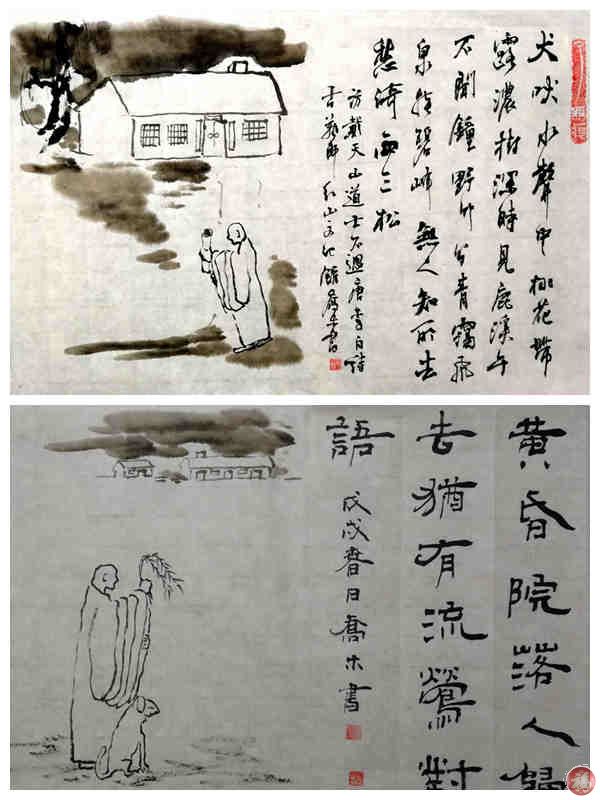 犬吠水聲中桃花帶
露濃樹深時見鹿溪午
不聞鐘野竹分青靄飛
泉掛碧峰無人知所去
愁倚兩三松
訪戴天山道士不遇唐李白詩
黃昏院落人歸
去猶有流鶯對
語
戊戌春日喬木書